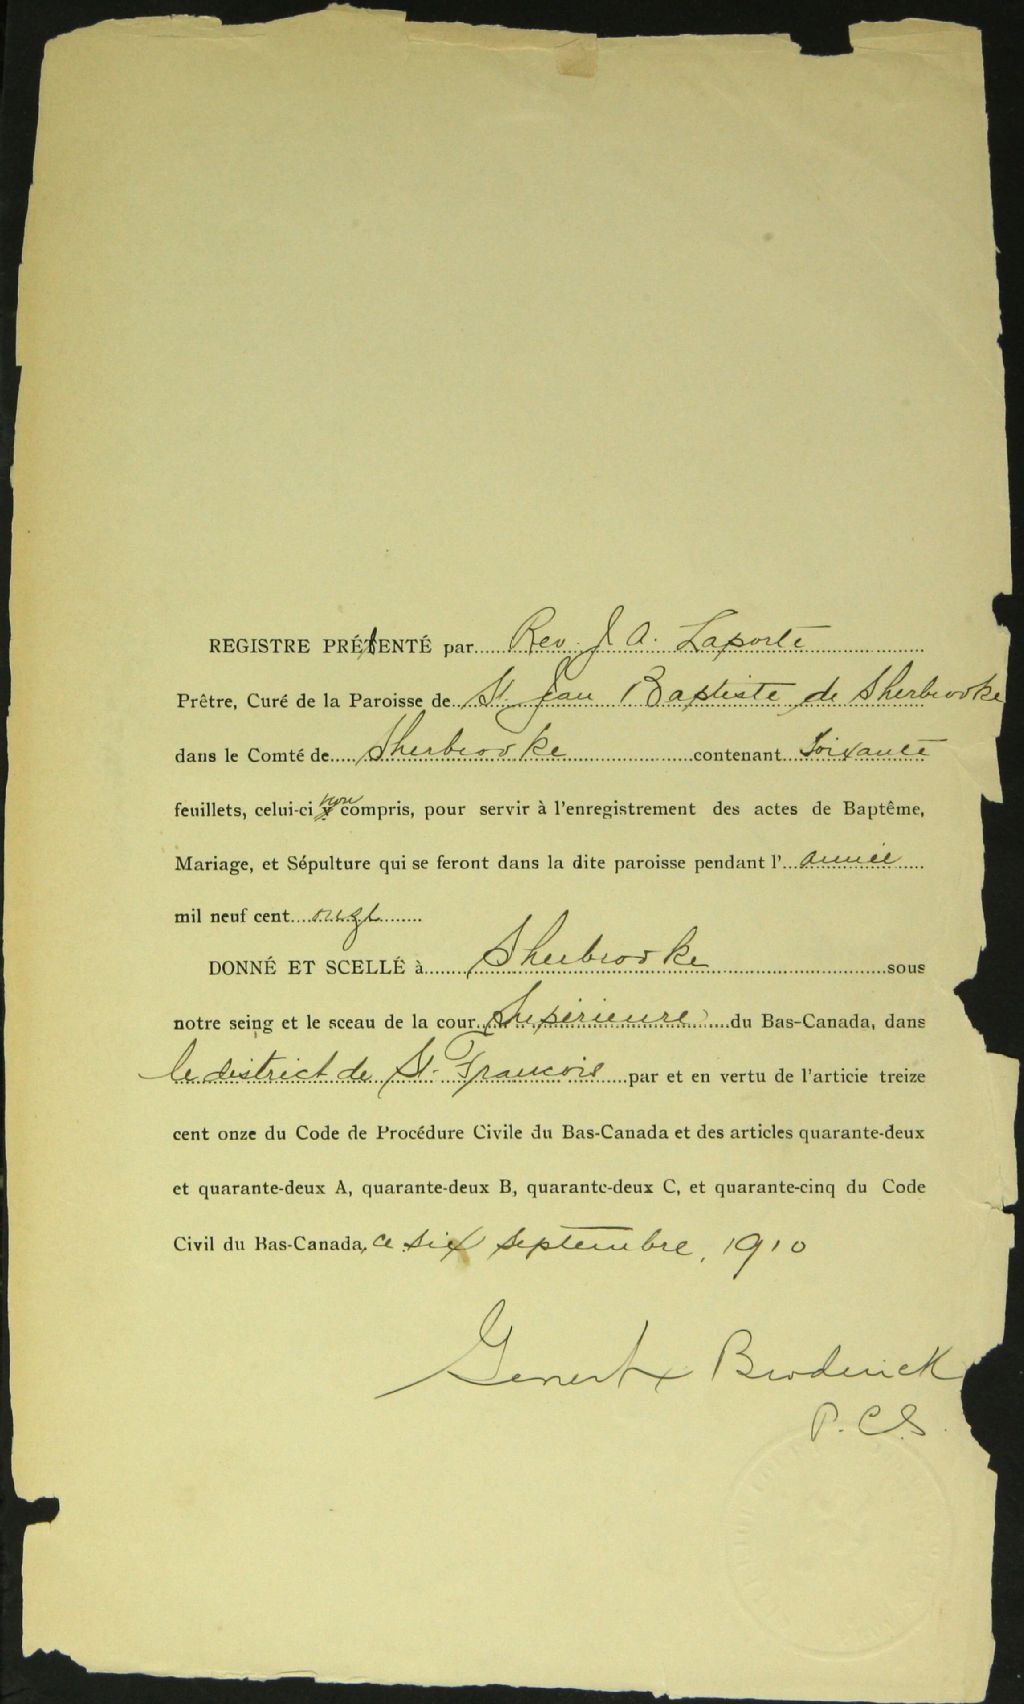 REGISTRE PRÉSENTÉ par Rev. J A. Laporte
Prêtre, Curé de la Paroisse de St Jean Baptiste de Sherbrooke
dans le Comté de Sherbrooke contenant Soixante
feuillets, celui-ci non compris, pour servir à l'enregistrement des actes de Baptême,
Mariage, et Sépulture qui se feront dans la dite paroisse pendant l' année
mil neuf cent onze
DONNÉ ET SCELLÉ à Sherbrooke sous
notre seing et le sceau de la cour Supérieure du Bas-Canada, dans
le district de St. Francois par et en vertu de l'articie treize
cent onze du Code de Procédure Civile du Bas-Canada et des articles quarante-deux
et quarante-deux A, quarante-deux B, quarante-deux C, et quarante-cinq du Code
Civil du Bas-Canada, ce six septembre, 1910
Broderick
P. C. S.